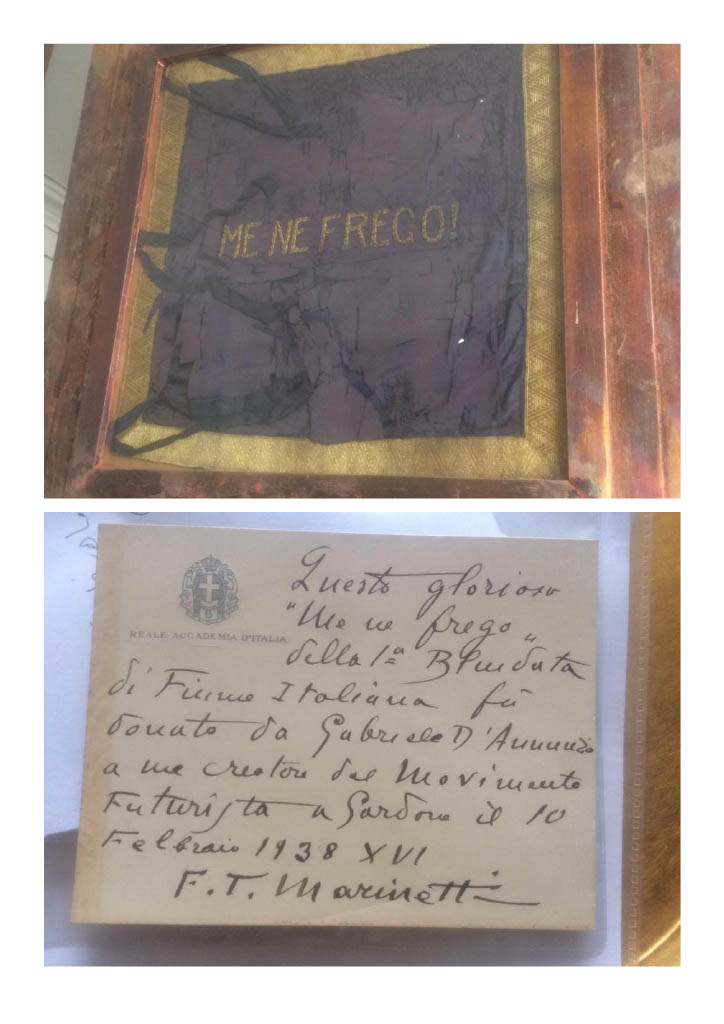 ME NE FREGO!
REALE ACCADEMIA D'ITALIA
Questo glorioso
"Me ne frego"
della 1ª Blindata
di Fiume Italiana fu
donato da Gabriele D'Annunzio
a me creatore del Movimento
Futurista a Gardone il 10
Febbraio 1938 XVI
F. T. Marinetti